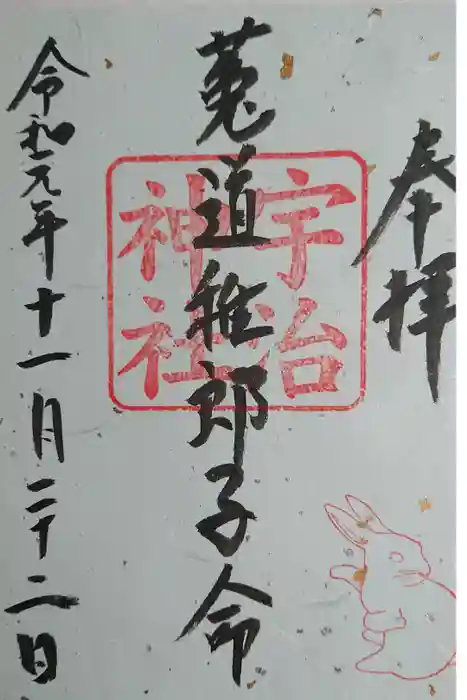 奉拝
菟道稚郎子命
宇治
神社
令和元年十一月二十二日